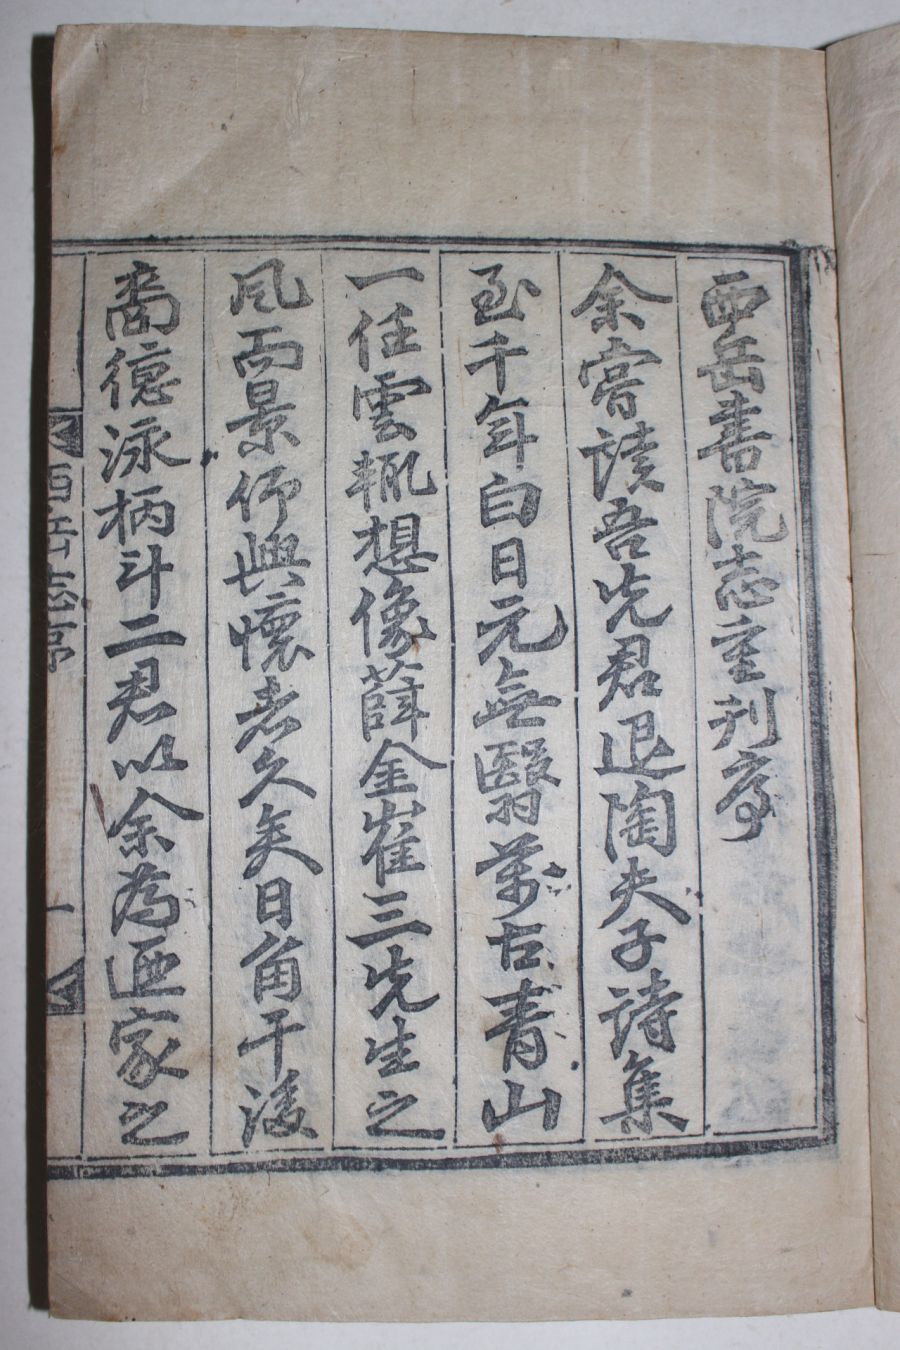 西岳書院志重刊序
余嘗讀吾先君退陶夫子詩集
至千年白日元無翳萬古青山
一任雲輙想像薛金崔三先生之
風而景仰興懷者久矣日角干後
裔德泳柄斗二君以余為迺家之
西岳志序
一